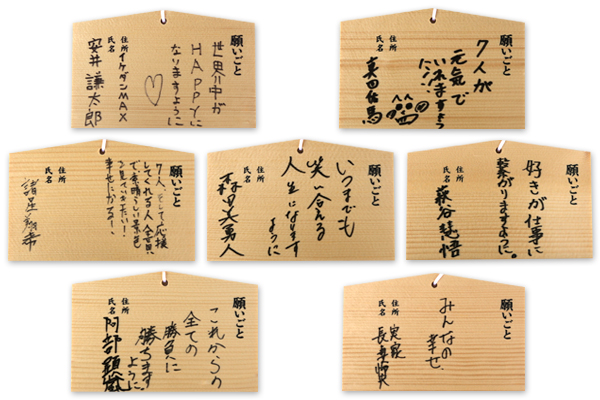 願いごと
世界中が
HAPPYに
なりますように
♡
住所 イケダンMAX
氏名
安井謙太郎
願いごと
7人が
元気で
いれますように
住所
氏名
真田佑馬
願いごと
7人、そして応援
してくれる人全員
で素晴らしい景色
を見ていきたい!
幸せになる!!
住所
氏名
諸星翔希
願いごと
いつまでも
笑い合える
人生になります
ように
住所
氏名
森田美勇人
願いごと
好きが仕事に
繋がりますように。
住所
氏名
萩谷慧悟
願いごと
これからの
全ての
勝負に
勝ちます
ように
住所
氏名
阿部顕嵐
願いごと
みんなの
幸せ。
住所 実家
氏名
長妻怜央